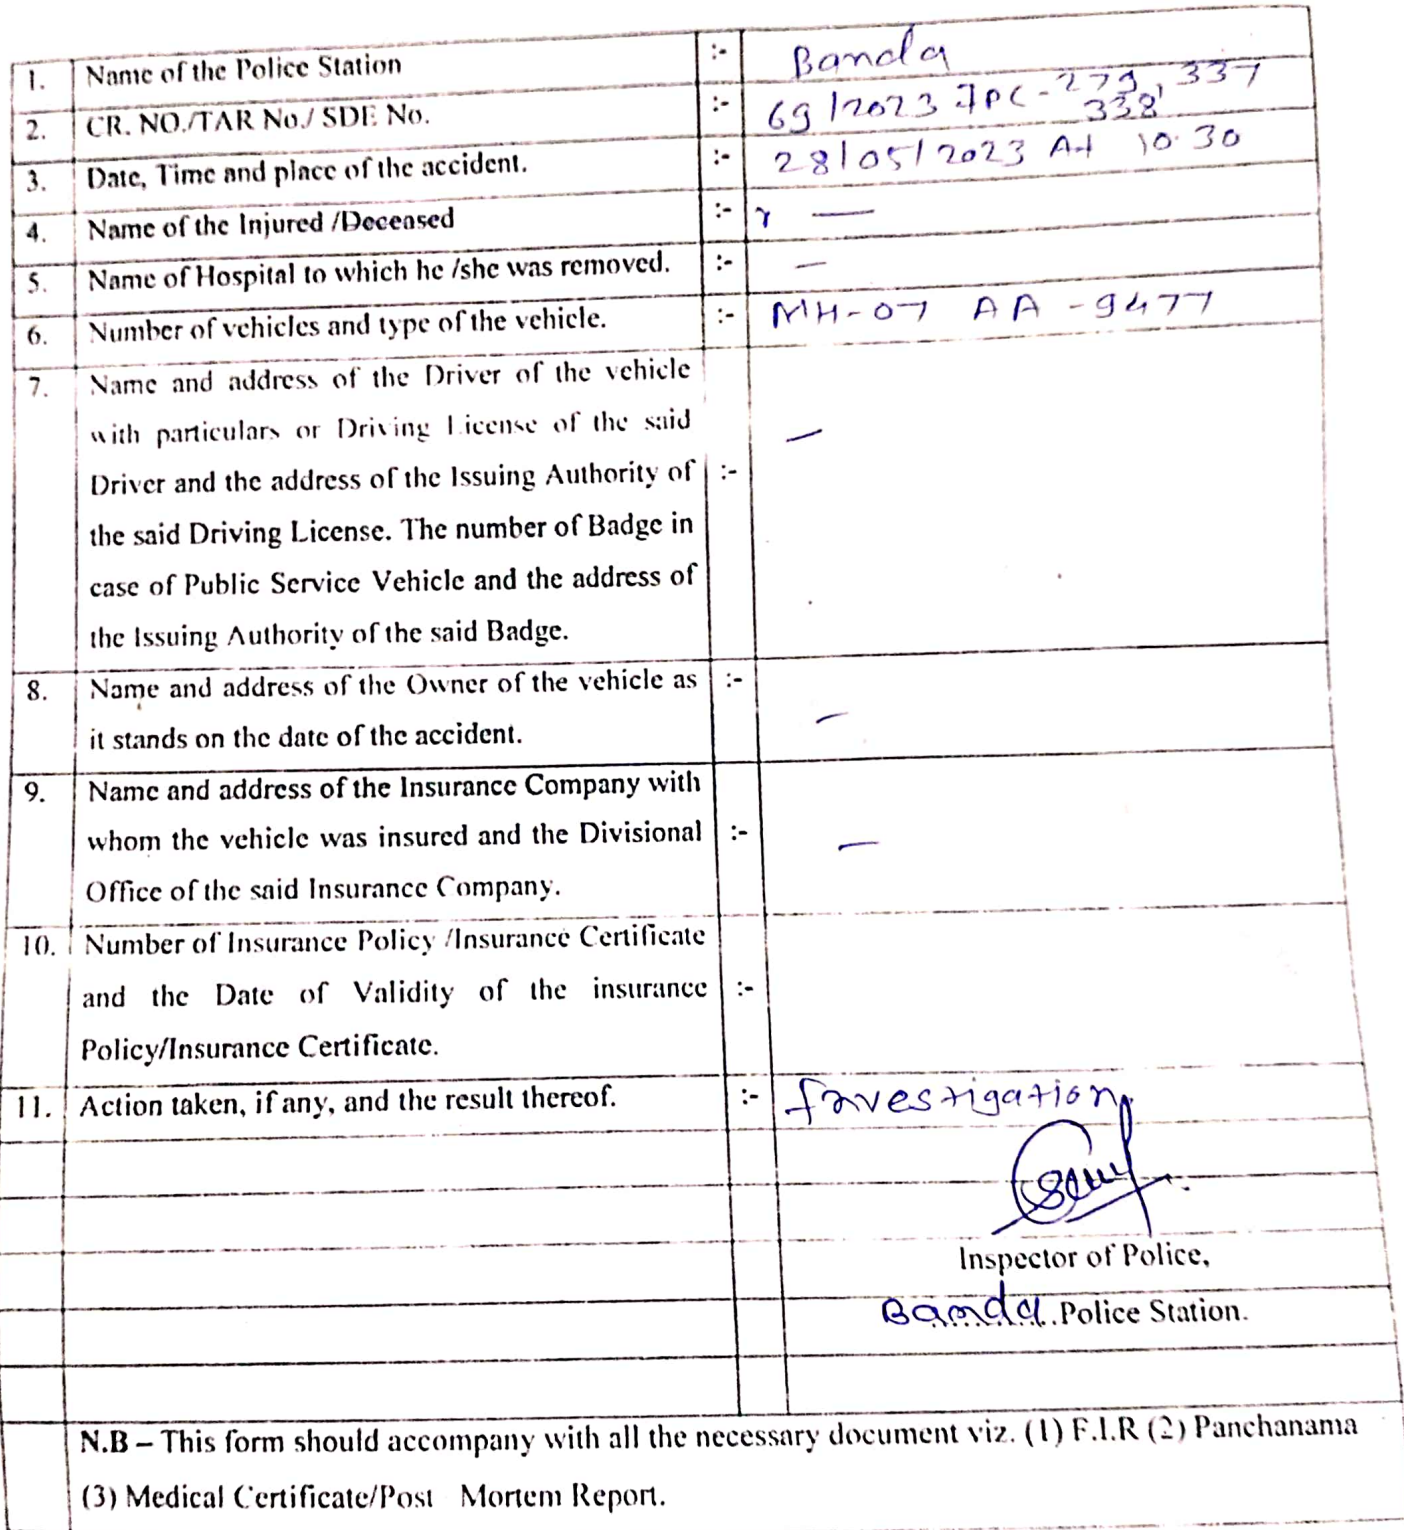 1. Name of the Police Station :- Banda
2. CR. NO./TAR No./ SDE No. :- 69/2023 IPC - 279, 337
338
3. Date, Time and place of the accident. :- 28/05/2023 At 10.30
4. Name of the Injured /Deceased :- —
5. Name of Hospital to which he /she was removed. :- —
6. Number of vehicles and type of the vehicle. :- MH-07 AA -9477
7. Name and address of the Driver of the vehicle
with particulars or Driving License of the said
Driver and the address of the Issuing Authority of :- —
the said Driving License. The number of Badge in
case of Public Service Vehicle and the address of
the Issuing Authority of the said Badge.
8. Name and address of the Owner of the vehicle as :- —
it stands on the date of the accident.
9. Name and address of the Insurance Company with
whom the vehicle was insured and the Divisional :- —
Office of the said Insurance Company.
10. Number of Insurance Policy /Insurance Certificate
and the Date of Validity of the insurance :-
Policy/Insurance Certificate.
11. Action taken, if any, and the result thereof. :- Investigation
Inspector of Police,
Banda Police Station.
N.B – This form should accompany with all the necessary document viz. (1) F.I.R (2) Panchanama
(3) Medical Certificate/Post Mortem Report.